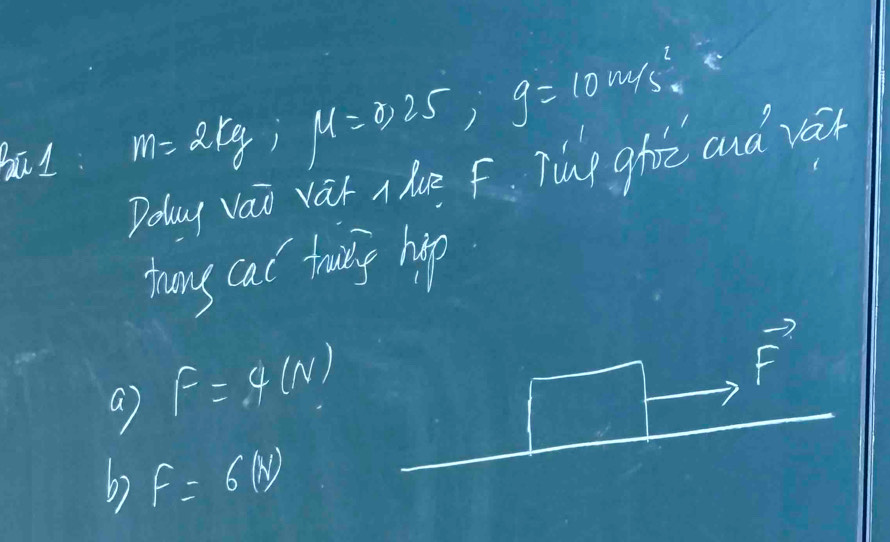 Bài 1 : m = 2kg ; μ = 0,25 ; g = 10 m/s².
Dụng vào vật 1 lực F. Tính gtốc của vật
trong các trường hợp.
a) F = 4 (N)
b) F = 6 (N)
F